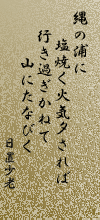 縄の浦に
塩焼く火気夕されば
行き過ぎかねて
山にたなびく
日置少老